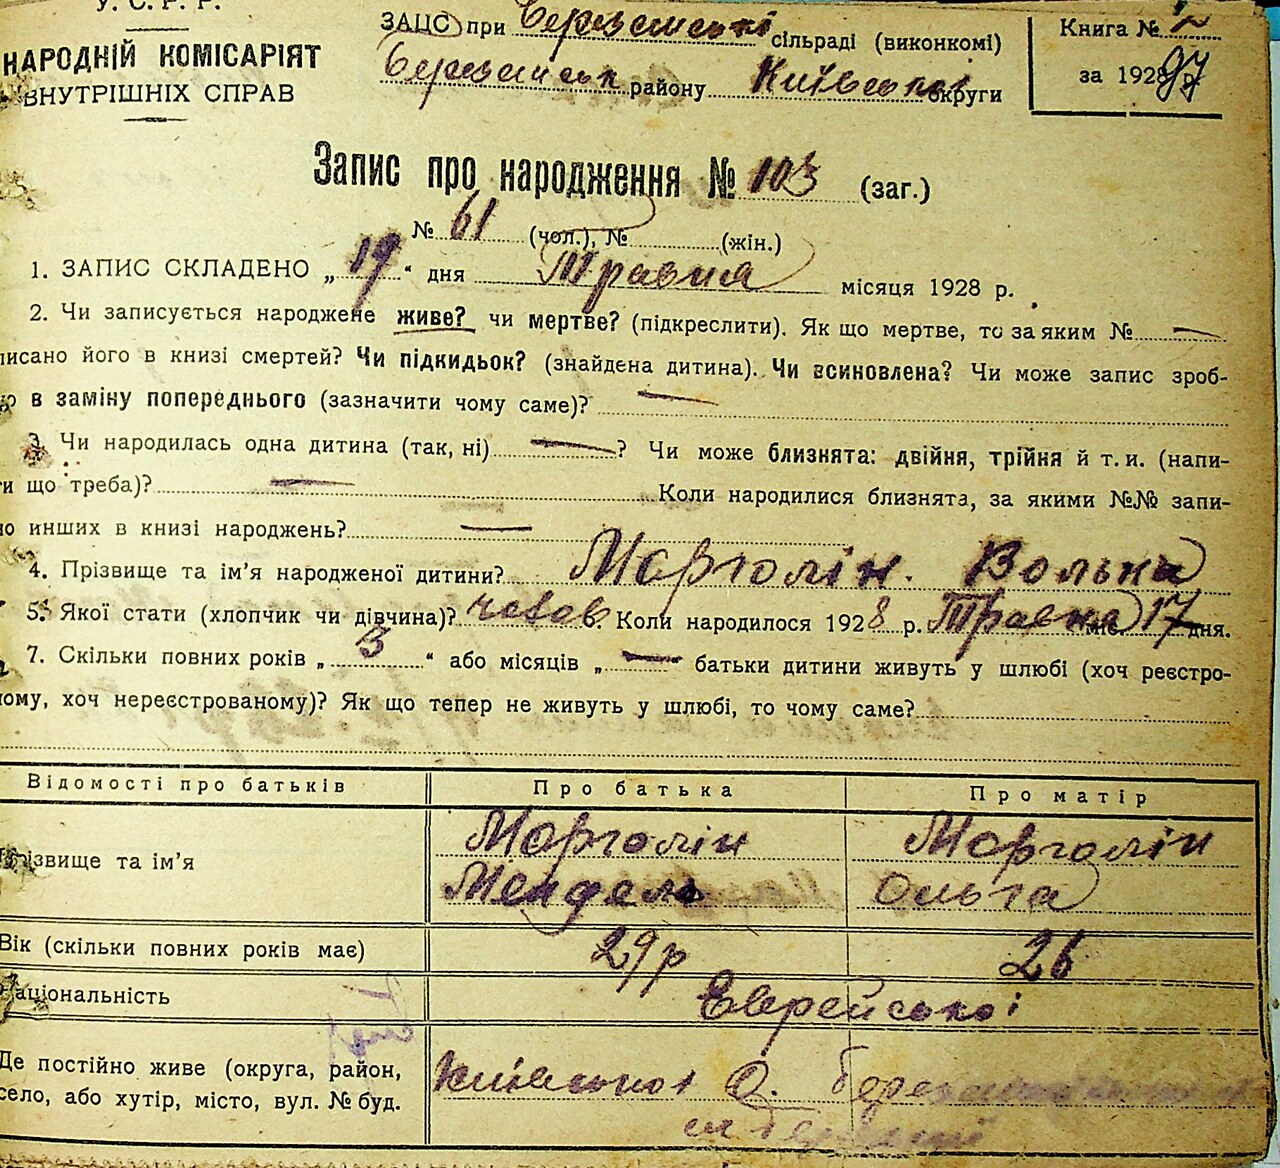 У. С. Р. Р.
НАРОДНІЙ КОМІСАРІЯТ
ВНУТРІШНІХ СПРАВ
ЗАЦС при сільраді (виконкомі)
району Київської округи
Книга № 2
за 1928 р.
Запис про народження № 103 (заг.)
№ 61 (чол.), № (жін.)
1. ЗАПИС СКЛАДЕНО „19“ дня Травня місяця 1928 р.
2. Чи записується народжене живе? чи мертве? (підкреслити). Як що мертве, то за яким № —
писано його в книзі смертей? Чи підкидьок? (знайдена дитина). Чи всиновлена? Чи може запис зроб-
в заміну попереднього (зазначити чому саме)? —
3. Чи народилась одна дитина (так, ні) — ? Чи може близнята: двійня, трійня й т. и. (напи-
ти що треба)? — Коли народилися близнята, за якими №№ запи-
но инших в книзі народжень? —
4. Прізвище та ім’я народженої дитини? Марголін. Волька
5. Якої стати (хлопчик чи дівчина)? чолов. Коли народилося 1928 р. Травня міс. 17 дня.
7. Скільки повних років „3“ або місяців „—“ батьки дитини живуть у шлюбі (хоч реєстро-
ому, хоч нереєстрованому)? Як що тепер не живуть у шлюбі, то чому саме?
Відомості про батьків Про батька Про матір
Прізвище та ім’я Марголін Марголін
Мендель Ольга
Вік (скільки повних років має) 29 р 26
Національність Єврейської
Де постійно живе (округа, район, Київської О.
село, або хутір, місто, вул. № буд.